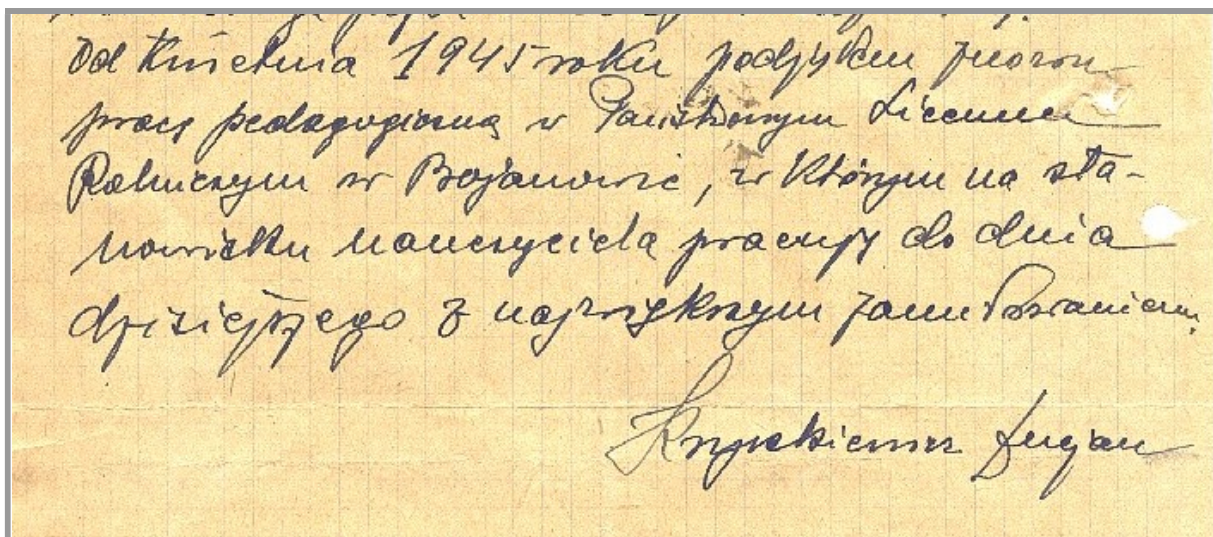 Od kwietnia 1945 roku podjąłem znowu
pracę pedagogiczną w Państwowym Liceum
Rolniczym w Bojanowie, w którym na sta-
nowisku nauczyciela pracuję do dnia
dzisiejszego z największym zamiłowaniem.
Krzyszkiewicz Lucjan